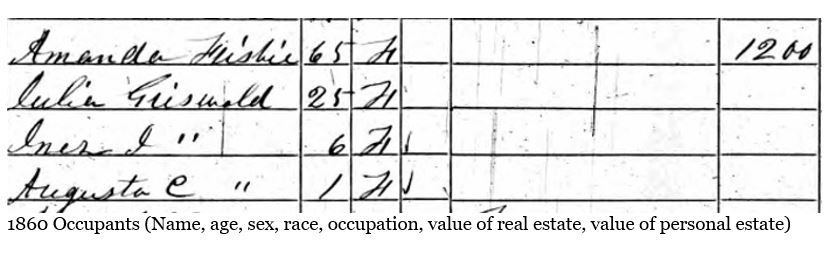 Amanda Frisbie 65 F 1200
Julia Griswold 25 F
Inez I " 6 F
Augusta C " 1 F
1860 Occupants (Name, age, sex, race, occupation, value of real estate, value of personal estate)